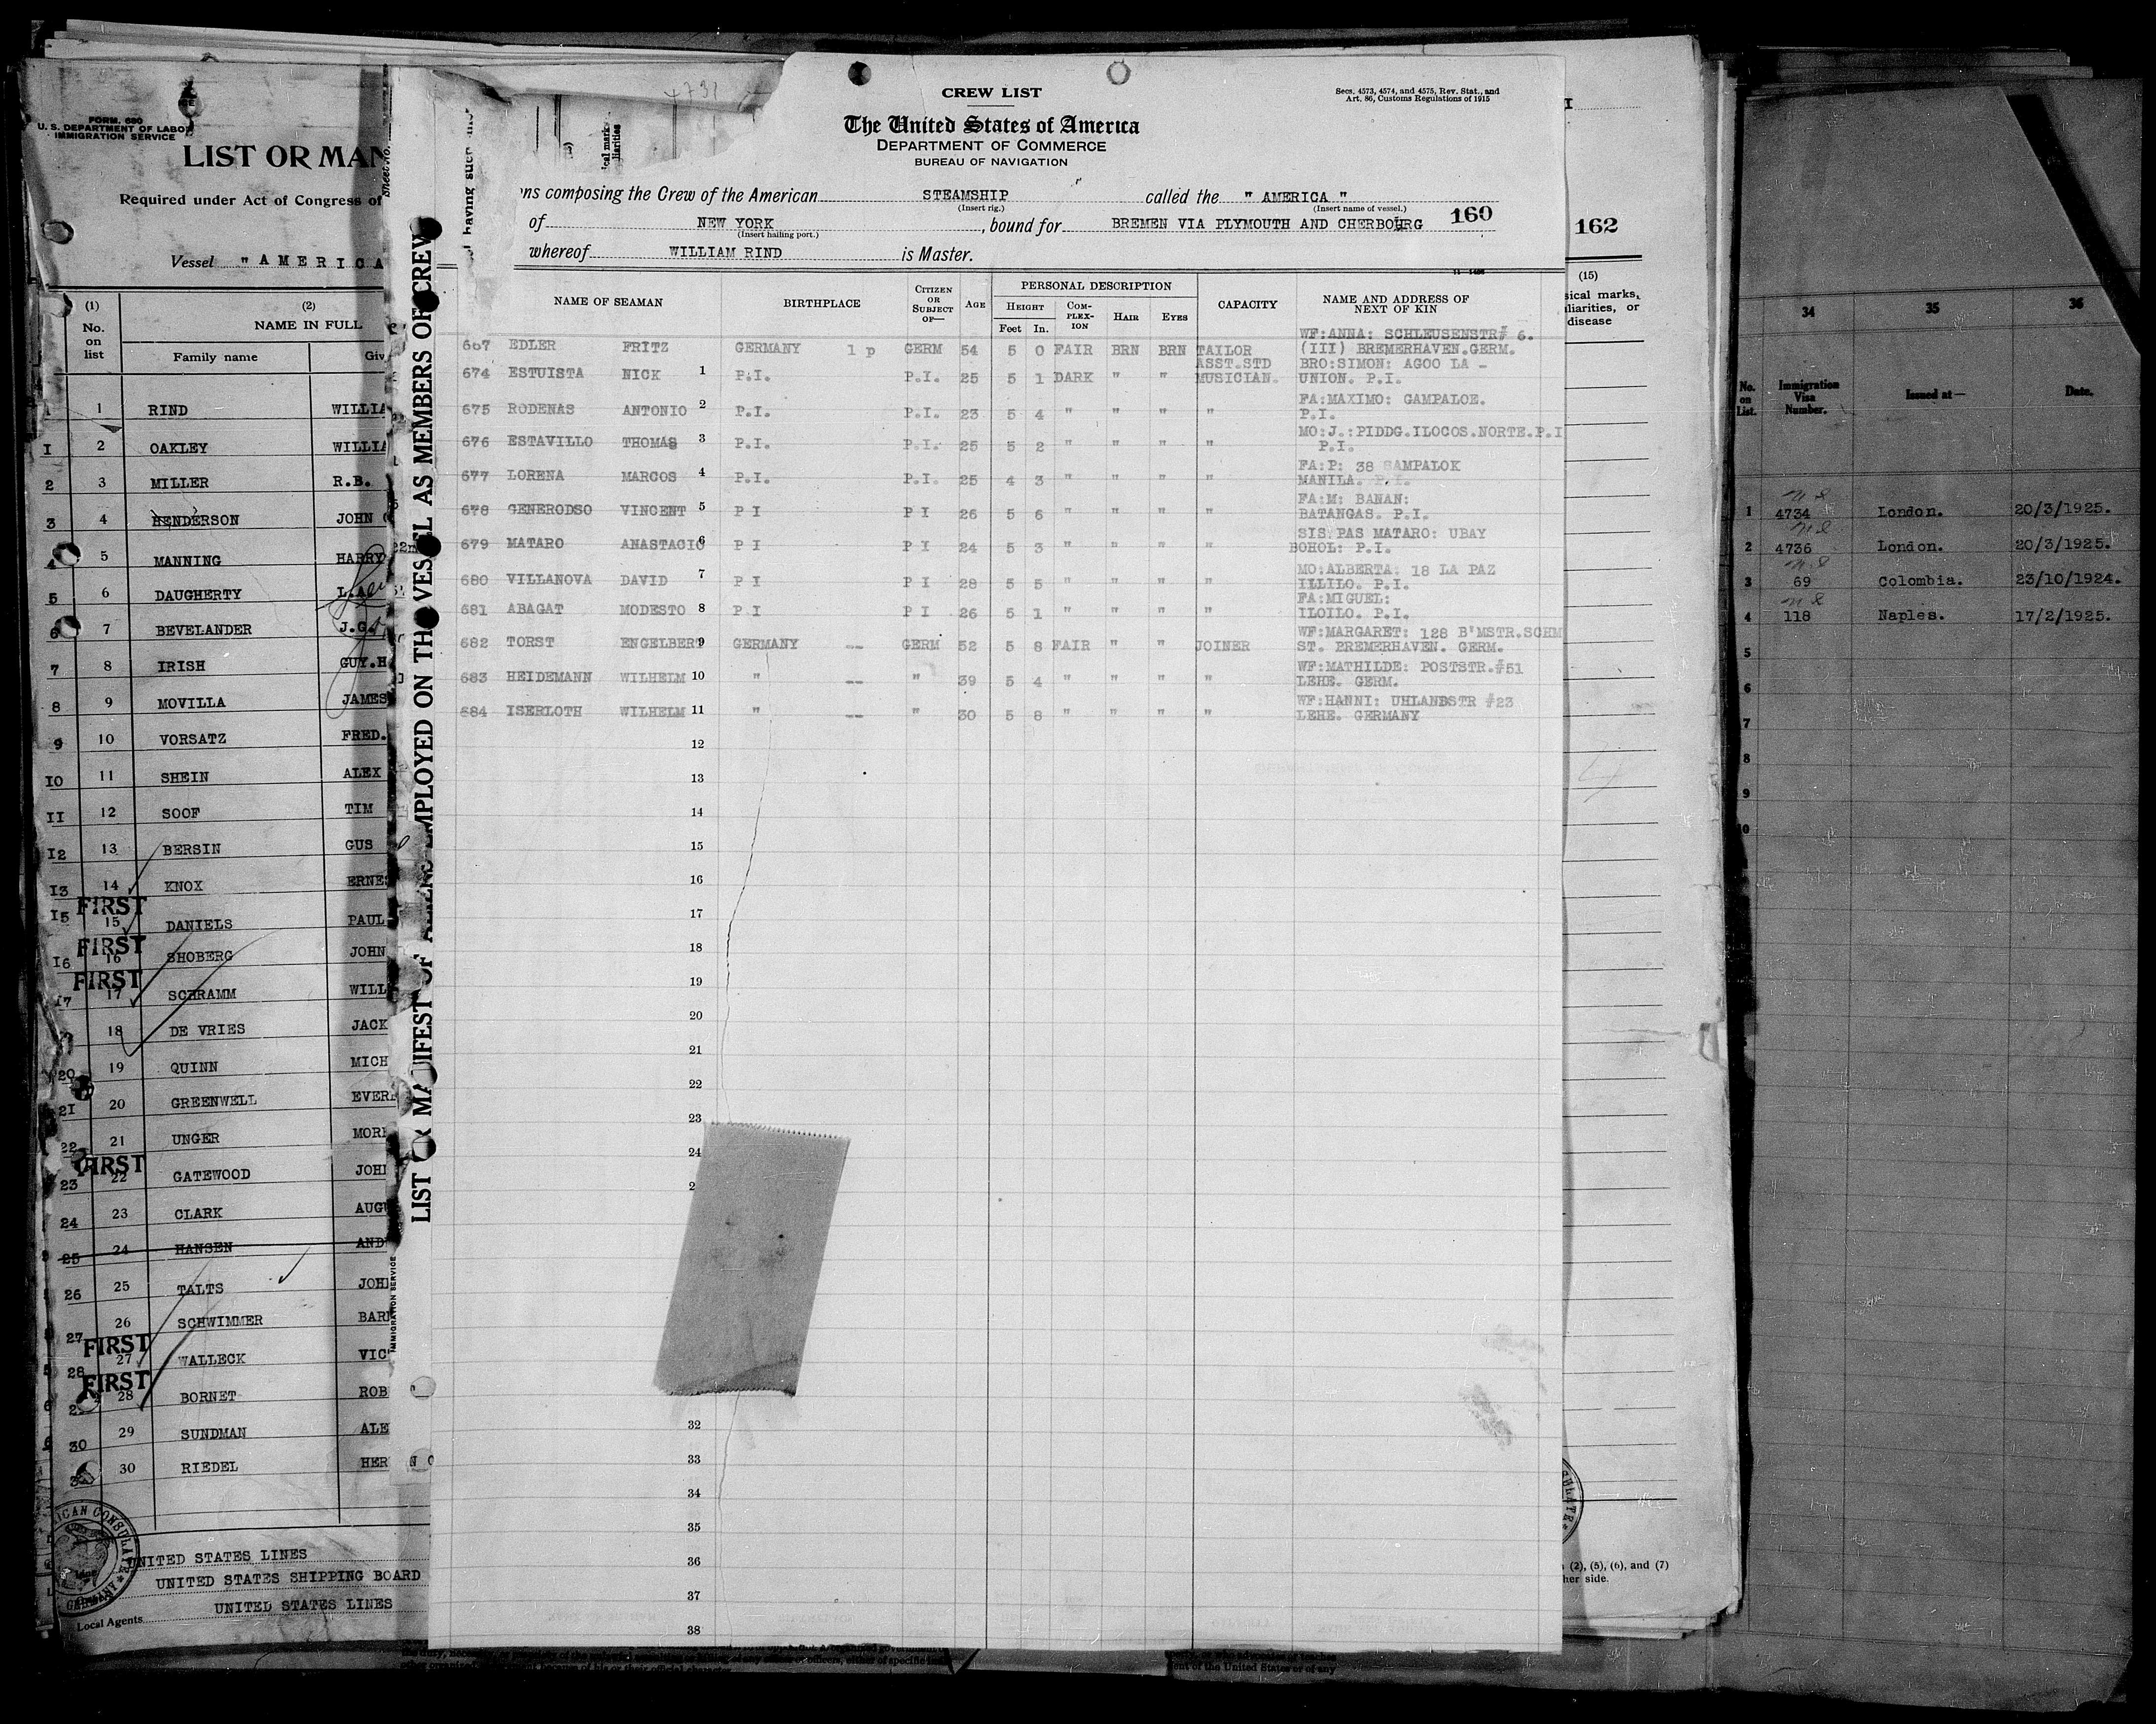 FORM. 680
U. S. DEPARTMENT OF LABOR
IMMIGRATION SERVICE
LIST OR MAN
Required under Act of Congress of
Vessel " A M E R I C A
(1) (2)
No. on list NAME IN FULL
Family name Giv
1 RIND WILLIA
2 OAKLEY WILLIA
3 MILLER R.B.
4 HENDERSON JOHN
5 MANNING HARRY
6 DAUGHERTY L.A.
7 BEVELANDER J.G.
8 IRISH GUY.H
9 MOVILLA JAMES
10 VORSATZ FRED.
11 SHEIN ALEX
12 SOOF TIM
13 BERSIN GUS
14 KNOX ERNES
FIRST
15 DANIELS PAUL
FIRST
16 SHOBERG JOHN
FIRST
17 SCHRAMM WILL
18 DE VRIES JACK
19 QUINN MICH
20 GREENWELL EVER
21 UNGER MOR
FIRST
22 GATEWOOD JOH
23 CLARK AUGU
24 HANSEN AND
25 TALTS JOH
26 SCHWIMMER BAR
FIRST
27 WALLECK VIC
FIRST
28 BORNET ROB
29 SUNDMAN ALE
30 RIEDEL HER
UNITED STATES LINES
UNITED STATES SHIPPING BOARD
UNITED STATES LINES
Local Agents
LIST OR MANIFEST OF ALIENS EMPLOYED ON THE VESSEL AS MEMBERS OF CREW
IMMIGRATION SERVICE
4731
CREW LIST
Secs. 4573, 4574, and 4575, Rev. Stat., and
Art. 86, Customs Regulations of 1915
The United States of America
DEPARTMENT OF COMMERCE
BUREAU OF NAVIGATION
ns composing the Crew of the American STEAMSHIP called the " AMERICA "
(Insert rig.) (Insert name of vessel.)
of NEW YORK , bound for BREMEN VIA PLYMOUTH AND CHERBOURG 160
(Insert hailing port.)
whereof WILLIAM RIND is Master.
NAME OF SEAMAN BIRTHPLACE CITIZEN OR SUBJECT OF— AGE PERSONAL DESCRIPTION CAPACITY NAME AND ADDRESS OF NEXT OF KIN
HEIGHT COM-PLEX-ION HAIR EYES
Feet In.
WF:ANNA: SCHLEUSENSTR# 6.
667 EDLER FRITZ GERMANY 1 p GERM 54 5 0 FAIR BRN BRN TAILOR (III) BREMERHAVEN.GERM.
ASST.STD BRO:SIMON: AGOO LA -
674 ESTUISTA NICK 1 P.I. P.I. 25 5 1 DARK " " MUSICIAN. UNION. P.I.
FA:MAXIMO: GAMPALOE.
675 RODENAS ANTONIO 2 P.I. P.I. 23 5 4 " " " " P.I.
MO:J.:PIDDG.ILOCOS.NORTE.P.I
676 ESTAVILLO THOMAS 3 P.I. P.I. 25 5 2 " " " " P.I.
FA:P: 38 SAMPALOK
677 LORENA MARCOS 4 P.I. P.I. 25 4 3 " " " " MANILA. P.I.
FA:M: BANAN:
678 GENERODSO VINCENT 5 P I P I 26 5 6 " " " " BATANGAS. P.I.
SIS:PAS MATARO: UBAY
679 MATARO ANASTACIO 6 P I P I 24 5 3 " " " " BOHOL: P.I.
MO:ALBERTA: 18 LA PAZ
680 VILLANOVA DAVID 7 P I P I 28 5 5 " " " " ILLILO. P.I.
FA:MIGUEL:
681 ABAGAT MODESTO 8 P I P I 26 5 1 " " " " ILOILO. P.I.
WF:MARGARET: 128 B'MSTR.SCHM
682 TORST ENGELBERT 9 GERMANY -- GERM 52 5 8 FAIR " " JOINER ST. PREMERHAVEN. GERM.
WF:MATHILDE: POSTSTR.#51
683 HEIDEMANN WILHELM 10 " -- " 39 5 4 " " " " LEHE. GERM.
WF:HANNI: UHLANDSTR #23
684 ISERLOTH WILHELM 11 " -- " 30 5 8 " " " " LEHE. GERMANY
12
13
14
15
16
17
18
19
20
21
22
23
24
2
32
33
34
35
36
37
38
162
(15)
sical marks,
liarities, or
disease
(2), (5), (6), and (7)
her side.
34 35 36
No. on List. Immigration Visa Number. Issued at— Date.
1 4734 London. 20/3/1925.
2 4736 London. 20/3/1925.
3 69 Colombia. 23/10/1924.
4 118 Naples. 17/2/1925.
5
6
7
8
9